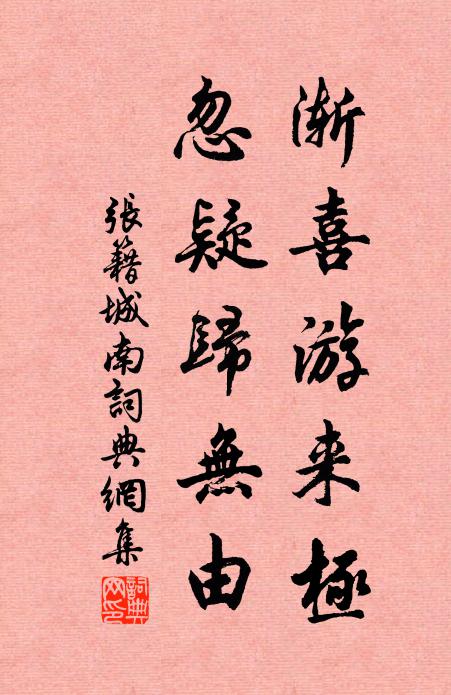 渐喜游来極
忽疑歸無由
張籍城南詞典網集
詞典网印